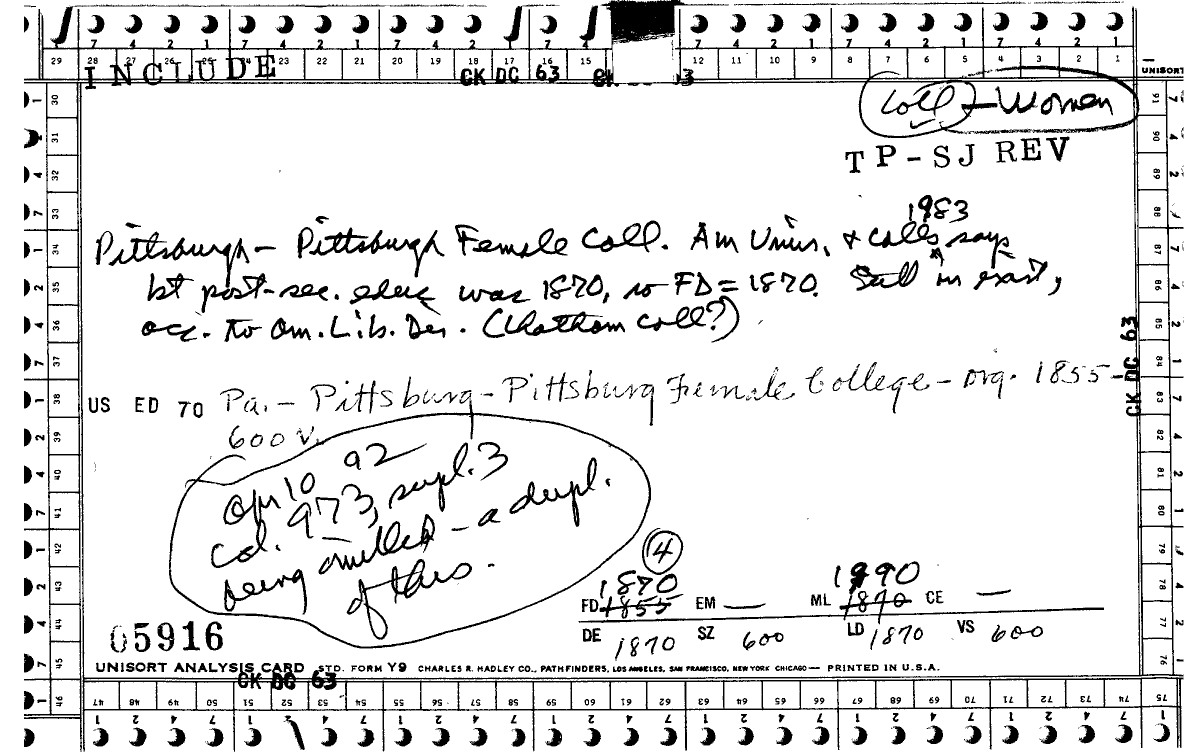 7 4 2 1 7 4 2 1 7 4 2 1 7 4 7 4 2 1 7 4 2 1 7 4 2 1
29 28 27 26 25 24 23 22 21 20 19 18 17 16 15 12 11 10 9 8 7 6 5 4 3 2 1
INCLUDE CK DC 63 63 UNISORT
Coll - Women
TP-SJ REV
1983
Pittsburgh - Pittsburgh Female Coll. Am Univs. & Colls says
1st post-sec. educ was 1870, so FD = 1870. Still in exist,
acc. to Am. Lib. Dir. (Chatham Coll?)
US ED 70 Pa. - Pittsburg - Pittsburg Female College - org. 1855 -
600 v.
CK DC 63
Apr 10 92
Col. 973, supl. 3
being omitted - a dupl.
of this.
4
1870 1990
FD 1855 EM — ML 1870 CE —
DE 1870 SZ 600 LD 1870 VS 600
05916
UNISORT ANALYSIS CARD STD. FORM Y9 CHARLES R. HADLEY CO., PATHFINDERS, LOS ANGELES, SAN FRANCISCO, NEW YORK CHICAGO — PRINTED IN U.S.A.
CK DC 63
30 31 32 33 34 35 36 37 38 39 40 41 42 43 44 45 46
47 48 49 50 51 52 53 54 55 56 57 58 59 60 61 62 63 64 65 66 67 68 69 70 71 72 73 74 75
76 77 78 79 80 81 82 83 84 85 86 87 88 89 90 91